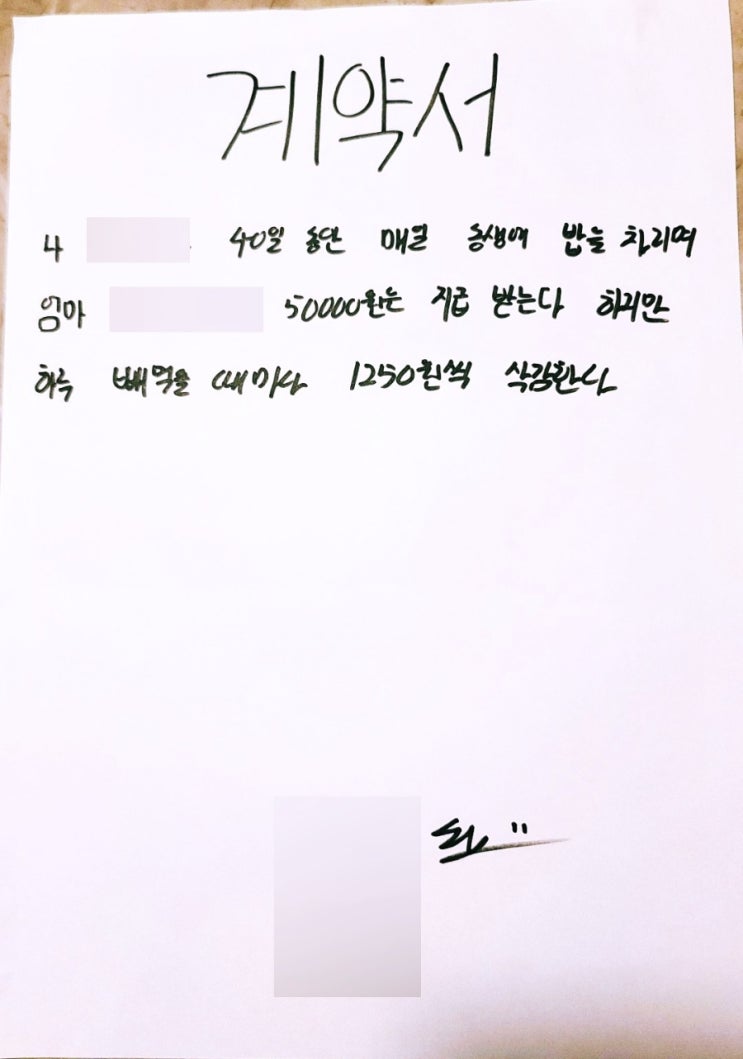 계약서
나 40일 동안 매일 동생에 밥을 차리며
엄마 50000원는 지급 받는다 하지만
하루 빼먹을 때마다 1250원씩 삭감한다